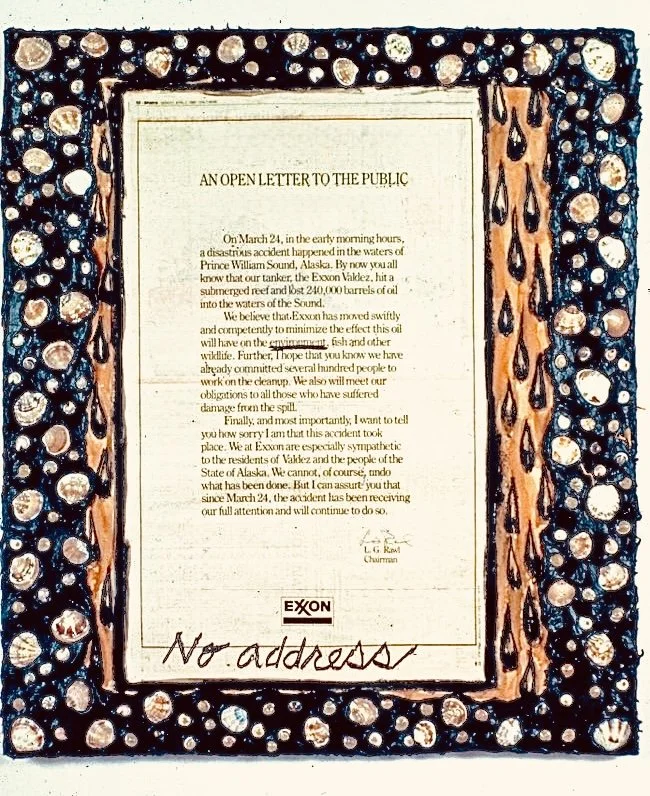 AN OPEN LETTER TO THE PUBLIC
On March 24, in the early morning hours,
a disastrous accident happened in the waters of
Prince William Sound, Alaska. By now you all
know that our tanker, the Exxon Valdez, hit a
submerged reef and lost 240,000 barrels of oil
into the waters of the Sound.
We believe that Exxon has moved swiftly
and competently to minimize the effect this oil
will have on the environment, fish and other
wildlife. Further, I hope that you know we have
already committed several hundred people to
work on the cleanup. We also will meet our
obligations to all those who have suffered
damage from the spill.
Finally, and most importantly, I want to tell
you how sorry I am that this accident took
place. We at Exxon are especially sympathetic
to the residents of Valdez and the people of the
State of Alaska. We cannot, of course, undo
what has been done. But I can assure you that
since March 24, the accident has been receiving
our full attention and will continue to do so.
L. G. Rawl
Chairman
EXXON
No address